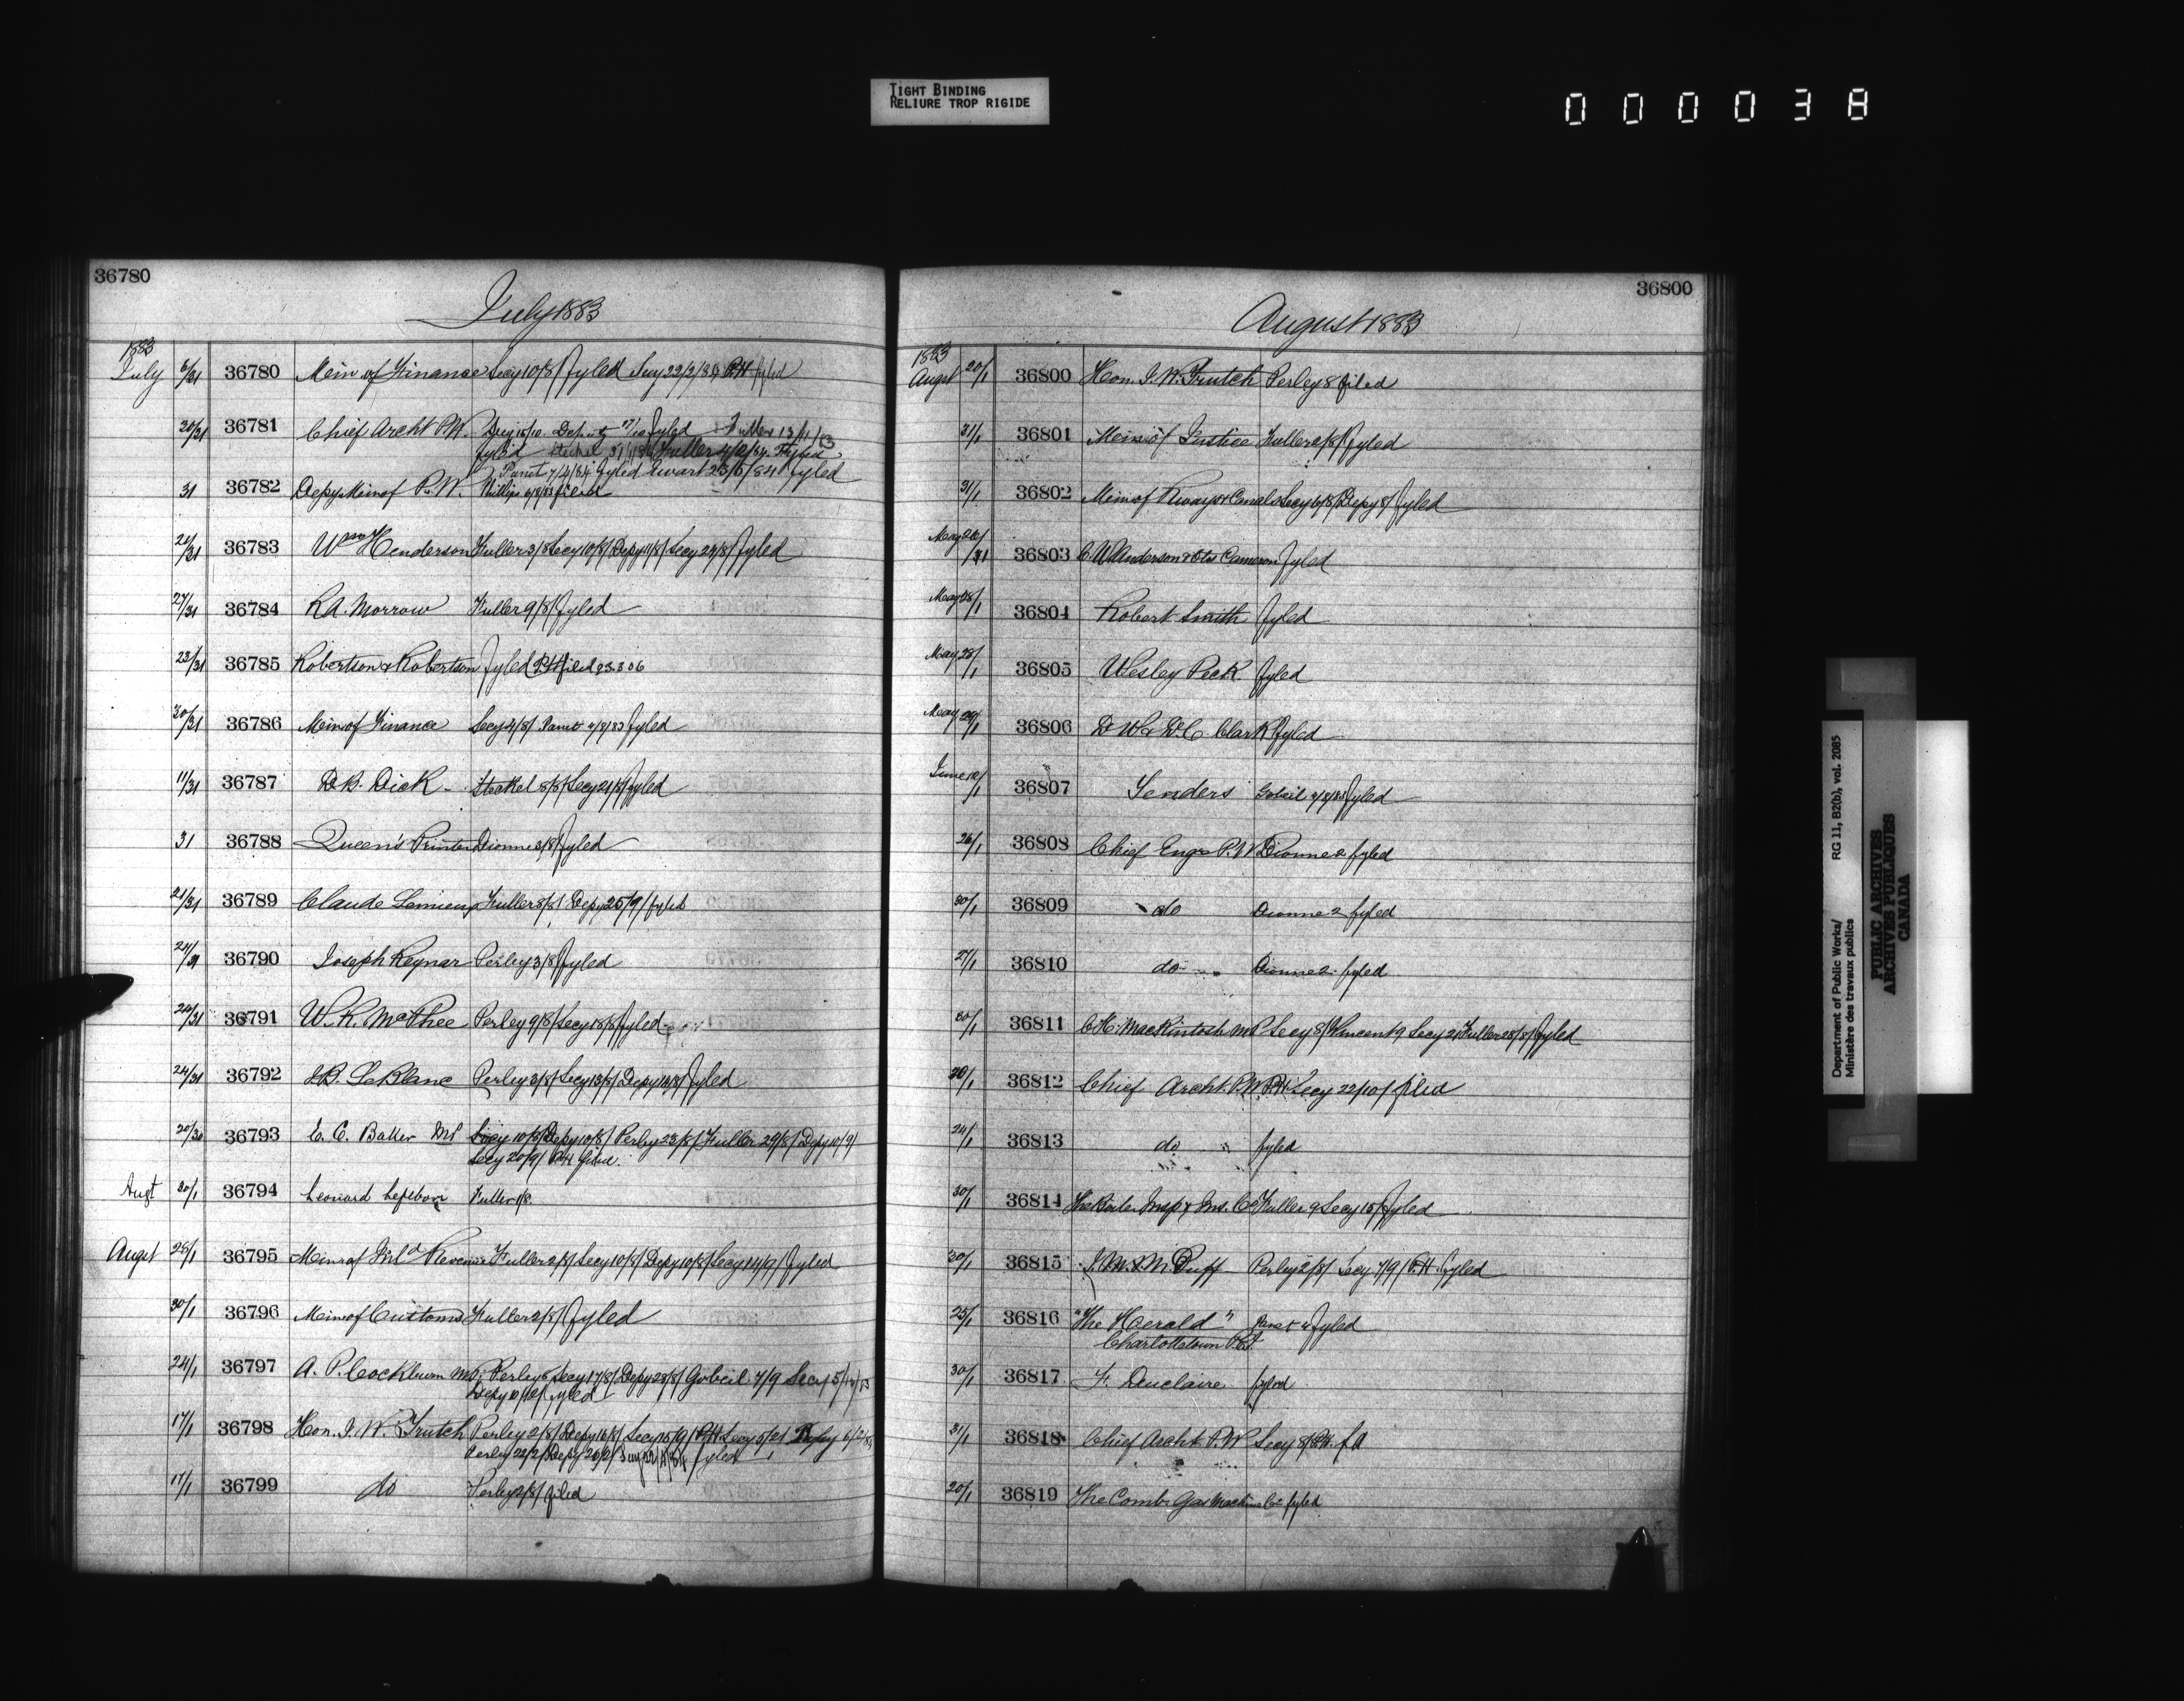 TIGHT BINDING
RELIURE TROP RIGIDE
000038
36780
July 1883
1883
July 6/31 36780 Mein of Finance Secy 10/8/ Fyled Secy 22/2/84 P.H fyled
30/31 36781 Chief Archt P.W. Secy 15/10 Deputy 17/10 fyled Fuller 13/11/83
fyled Steckel 31/1/84 Fuller 4/2/84 Fyled
Panet 7/4/84 fyled Ewart 23/5/84 fyled
31 36782 Depy Mein of P.W. Phillips 6/8/83 filed
21/31 36783 Wm Henderson Fuller 3/8 Secy 10/8/ Depy 11/8/ Secy 27/8/ Fyled
27/31 36784 R.A. Morrow Fuller 9/8/ fyled
23/31 36785 Robertson & Robertson Fyled P.H filed 23.3.06
30/31 36786 Mein of Finance Secy 4/8/ Panet 4/8/83 fyled
11/31 36787 D.B. Dick Steckel 8/8/ Secy 21/8/ fyled
31 36788 Queen's Printer Dionne 3/8/ fyled
21/31 36789 Claude Lemieux Fuller 8/8/ Depy 25/9/ fyled
24/31 36790 Joseph Reynar Perley 3/8/ Fyled
24/31 36791 W.R. McPhee Perley 9/8/ Secy 18/8/ fyled
24/31 36792 J.B. LeBlanc Perley 3/8/ Secy 13/8/ Depy 14/8/ Fyled
20/30 36793 E. C. Baker MP Secy 10/8/ Depy 10/8/ Perley 23/8/ Fuller 29/8/ Depy 10/9/
Secy 20/9/ P.H filed
Augt 30/1 36794 Leonard Lefebvre Fuller 1/8
Augst 28/1 36795 Mein of Inld Revenue Fuller 2/8/ Secy 10/8/ Depy 10/8/ Secy 14/9/ Fyled
30/1 36796 Mein of Customs Fuller 2/8/ Fyled
24/1 36797 A. P. Cockburn MP. Perley 6 Secy 17/8/ Depy 28/8/ Gobeil 7/9 Secy 5/12/83
Depy 10/12/ fyled
17/1 36798 Hon. J. W. Trutch Perley 2/8/ Depy 16/8/ Secy 15/9/ P.H Secy 5/2/ Depy 6/2/84
Perley 22/2/ Depy 29/2/ fyled
17/1 36799 do Perley 2/8/ filed
36800
August 1883
1883
Augst 20/1 36800 Hon. J. W. Trutch Perley 8 filed
31/1 36801 Mein of Justice Fuller 2/8/ fyled
31/1 36802 Mein of Rways & Canals Secy 6/8/ Depy 8/ fyled
May 26/31 36803 C. W. Anderson & Otis Cameron fyled
May 28/1 36804 Robert Smith fyled
May 28/1 36805 Wesley Peck. fyled
May 29/1 36806 D W & D. C. Clark fyled
June 12/1 36807 Tenders Gobeil fyled
26/1 36808 Chief Engr P.W Dionne 2 fyled
30/1 36809 do Dionne 2 fyled
27/1 36810 do Dionne 2 fyled
30/1 36811 C.H. Mackintosh MP Secy 8/ Vincent 9 Secy 21 Fuller 28/8/ fyled
30/1 36812 Chief Archt. P.W. P.H. Secy 22/10/ filed
24/1 36813 do " fyled
30/1 36814 The Boiler Insp & Ins. Co Fuller 9 Secy 15/ fyled
30/1 36815 Duff Perley 2/8/ Secy 7/9/ P.H. fyled
25/1 36816 "The Herald" Panet fyled
Charlottetown P.E.I.
30/1 36817 F. Duclaire fyled
31/1 36818 Chief Archt P.W Secy 8/ P.H.
20/1 36819 The Comb. Gas Machine Co fyled
Department of Public Works/ RG 11, B2(b), vol. 2085
Ministère des travaux publics
PUBLIC ARCHIVES
ARCHIVES PUBLIQUES
CANADA